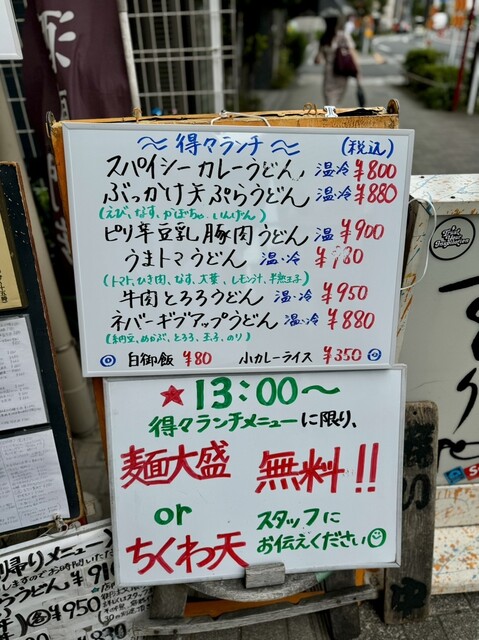 〜 得々ランチ 〜 (税込)
スパイシーカレーうどん 温・冷 ¥800
ぶっかけ天ぷらうどん 温・冷 ¥880
(えび、なす、かぼちゃ、いんげん)
ピリ辛豆乳豚肉うどん 温 ¥900
うまトマうどん 温・冷
(トマト、ひき肉、なす、大葉、レモン汁、半熟玉子)
牛肉とろろうどん 温・冷 ¥950
ネバーギブアップうどん 温・冷 ¥880
めかぶ、とろろ、玉子、のり)
白御飯 ¥80 小カレーライス ¥350
★13:00〜
得々ランチメニューに限り、
麺大盛 無料!!
or
ちくわ天
スタッフに
お伝えください
帰りメニュー
¥950